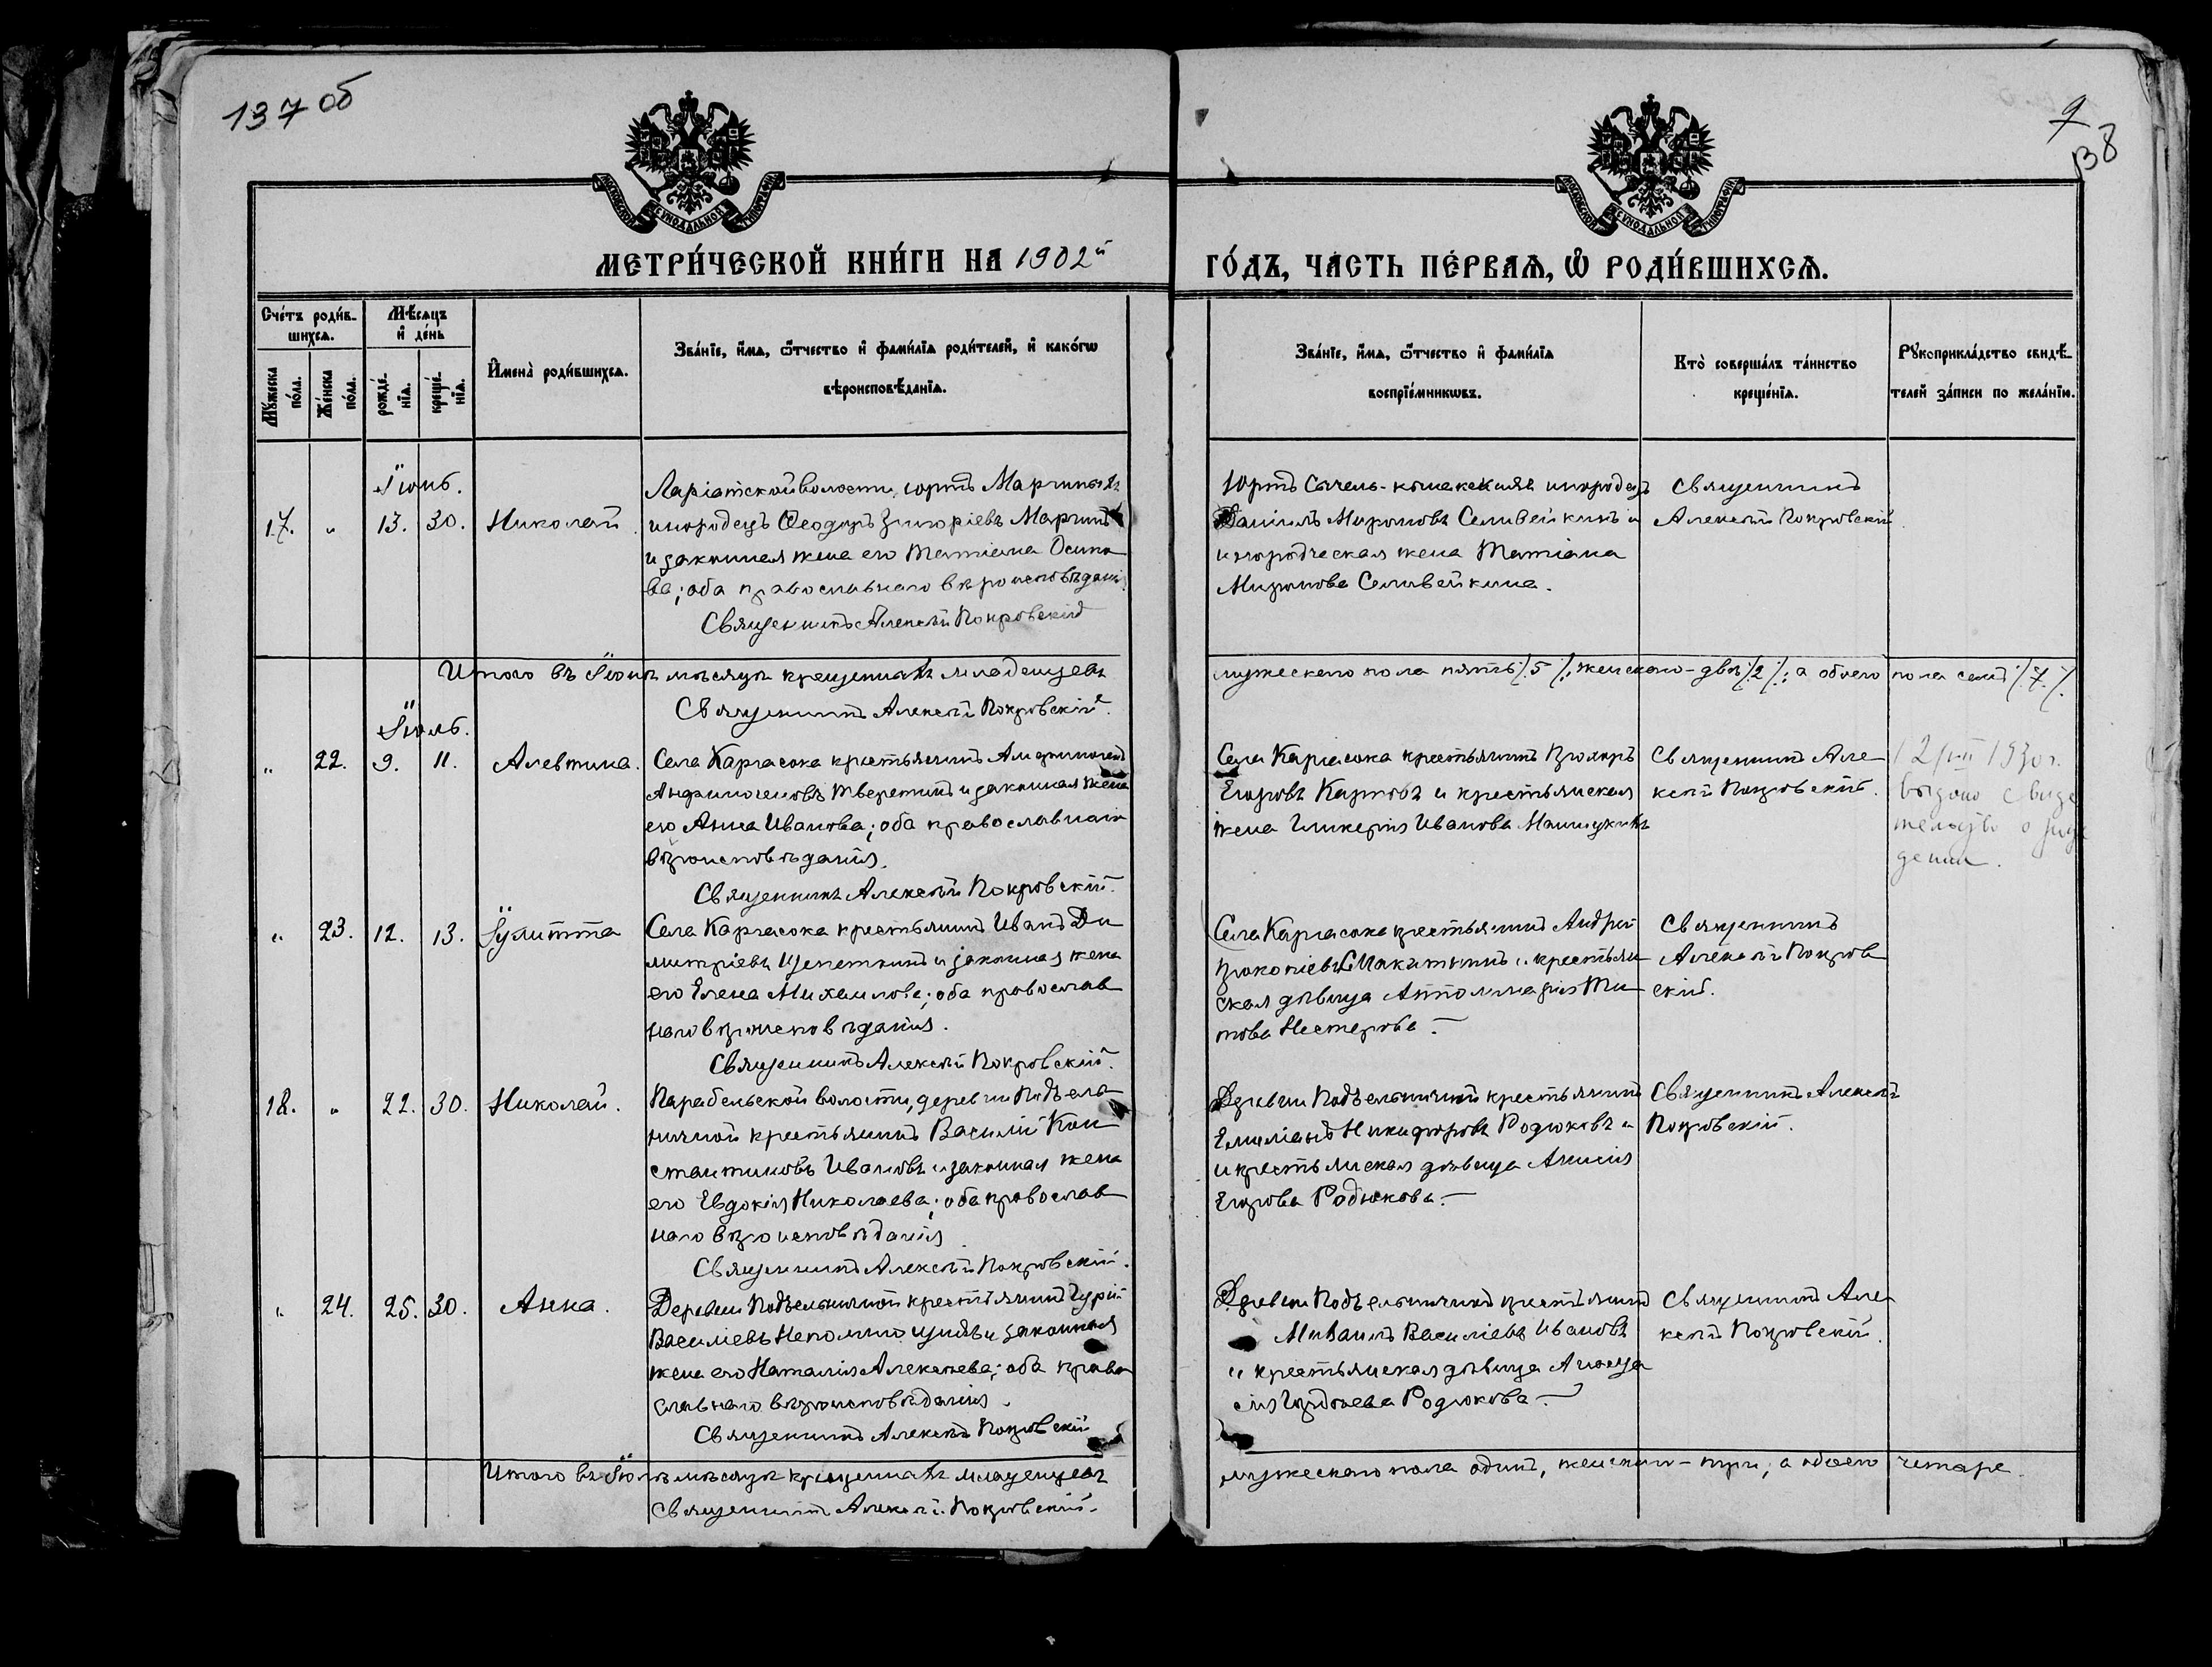 137 об
9
138
МОСКОВСКОЙ СѴНОДАЛЬНОЙ ТИПОГРАФІИ
МОСКОВСКОЙ СѴНОДАЛЬНОЙ ТИПОГРАФІИ
МЕТРИ́ЧЕСКОЙ КНИ́ГИ НА 1902й
ГО́ДЪ, ЧА́СТЬ ПЕ́РВАѦ, Ѽ РОДИ́ВШИХСѦ.
Сче́тъ роди́в-
шихсѧ.
Мꙋ́жеска по́ла.
Же́нска по́ла.
Мѣ́сѧцъ
и҆ де́нь
рожде́-
нїѧ.
креще́-
нїѧ.
И҆мена̀ роди́вшихсѧ.
Зва́нїе, и҆́мѧ, ѻ҆́тчество и҆ фами́лїѧ роди́телей, и҆ како́гѡ
вѣроисповѣ́данїѧ.
Зва́нїе, и҆́мѧ, ѻ҆́тчество и҆ фами́лїѧ
воспрїе́мникѡвъ.
Кто̀ соверша́лъ та́инство
креще́нїѧ.
Рꙋкоприкла́дство свидѣ́-
телей за́писи по жела́нїю.
Іюнь.
17. " 13. 30. Николай.
Ларіатской волости, юртъ Маргиныхъ
инородецъ Ѳеодоръ Григоріевъ Маргинъ
и законная жена его Татіана Осипо
ва; оба православнаго вѣроисповѣданія.
Священникъ Алексѣй Покровскій
Юртъ инородецъ
Даніилъ Мироновъ Селивейкинъ и
инородческая жена Татіана
Миронова Селивейкина.
Священникъ
Алексѣй Покровскій.
Итого въ Іюнѣ мѣсяцѣ крещенныхъ младенцевъ
мужескаго пола пять /5/; женскаго - двѣ /2/; а обоего пола семь /7/.
Священникъ Алексѣй Покровскій.
Іюль.
" 22. 9. 11. Алевтина.
Села Каргасока крестьянинъ Анфиногенъ
Анфиногеновъ Тверетинъ и законная жена
его Анна Иванова; оба православнаго
вѣроисповѣданія.
Священникъ Алексѣй Покровскій.
Села Каргасока крестьянинъ
Егоровъ Карповъ и крестьянская
жена Гликерія Иванова
Священникъ Але-
ксѣй Покровскій.
12/VII 1930 г.
выдано свиде
тельство о рож
дении.
" 23. 12. 13. Іулитта
Села Каргасока крестьянинъ Иванъ Ди
митріевъ Щепеткинъ и законная жена
его Елена Михаилова; оба православ
наго вѣроисповѣданія.
Священникъ Алексѣй Покровскій.
Села Каргасока крестьянинъ Андрей
Прокопіевъ и крестьян
ская дѣвица Апполинарія Ти
това Нестерова.
Священникъ
Алексѣй Покров
скій.
18. " 22. 30. Николай.
Парабельской волости, деревни Подъель
ничной крестьянинъ Василій Кон
стантиновъ Ивановъ и законная жена
его Евдокія Николаева; оба православ
наго вѣроисповѣданія
Священникъ Алексѣй Покровскій.
Деревни Подъельничной крестьянинъ
Емиліанъ Никифоровъ Родюковъ и
крестьянская дѣвица Анисія
Егорова Родюкова.
Священникъ Алексѣй
Покровскій.
" 24. 25. 30. Анна.
Деревни Подъельничной крестьянинъ Гурій
Василіевъ Непомнющихъ и законная
жена его Наталія Алексѣева; оба право
славнаго вѣроисповѣданія.
Священникъ Алексѣй Покровскій
Деревни Подъельничной крестьянинъ
Михаилъ Василіевъ Ивановъ
и крестьянская дѣвица
Родюкова.
Священникъ Але
ксѣй Покровскій.
Итого въ Іюлѣ мѣсяцѣ крещенныхъ младенцевъ
мужескаго пола одинъ, женскаго - три; а обоего четыре.
Священникъ Алексѣй Покровскій.